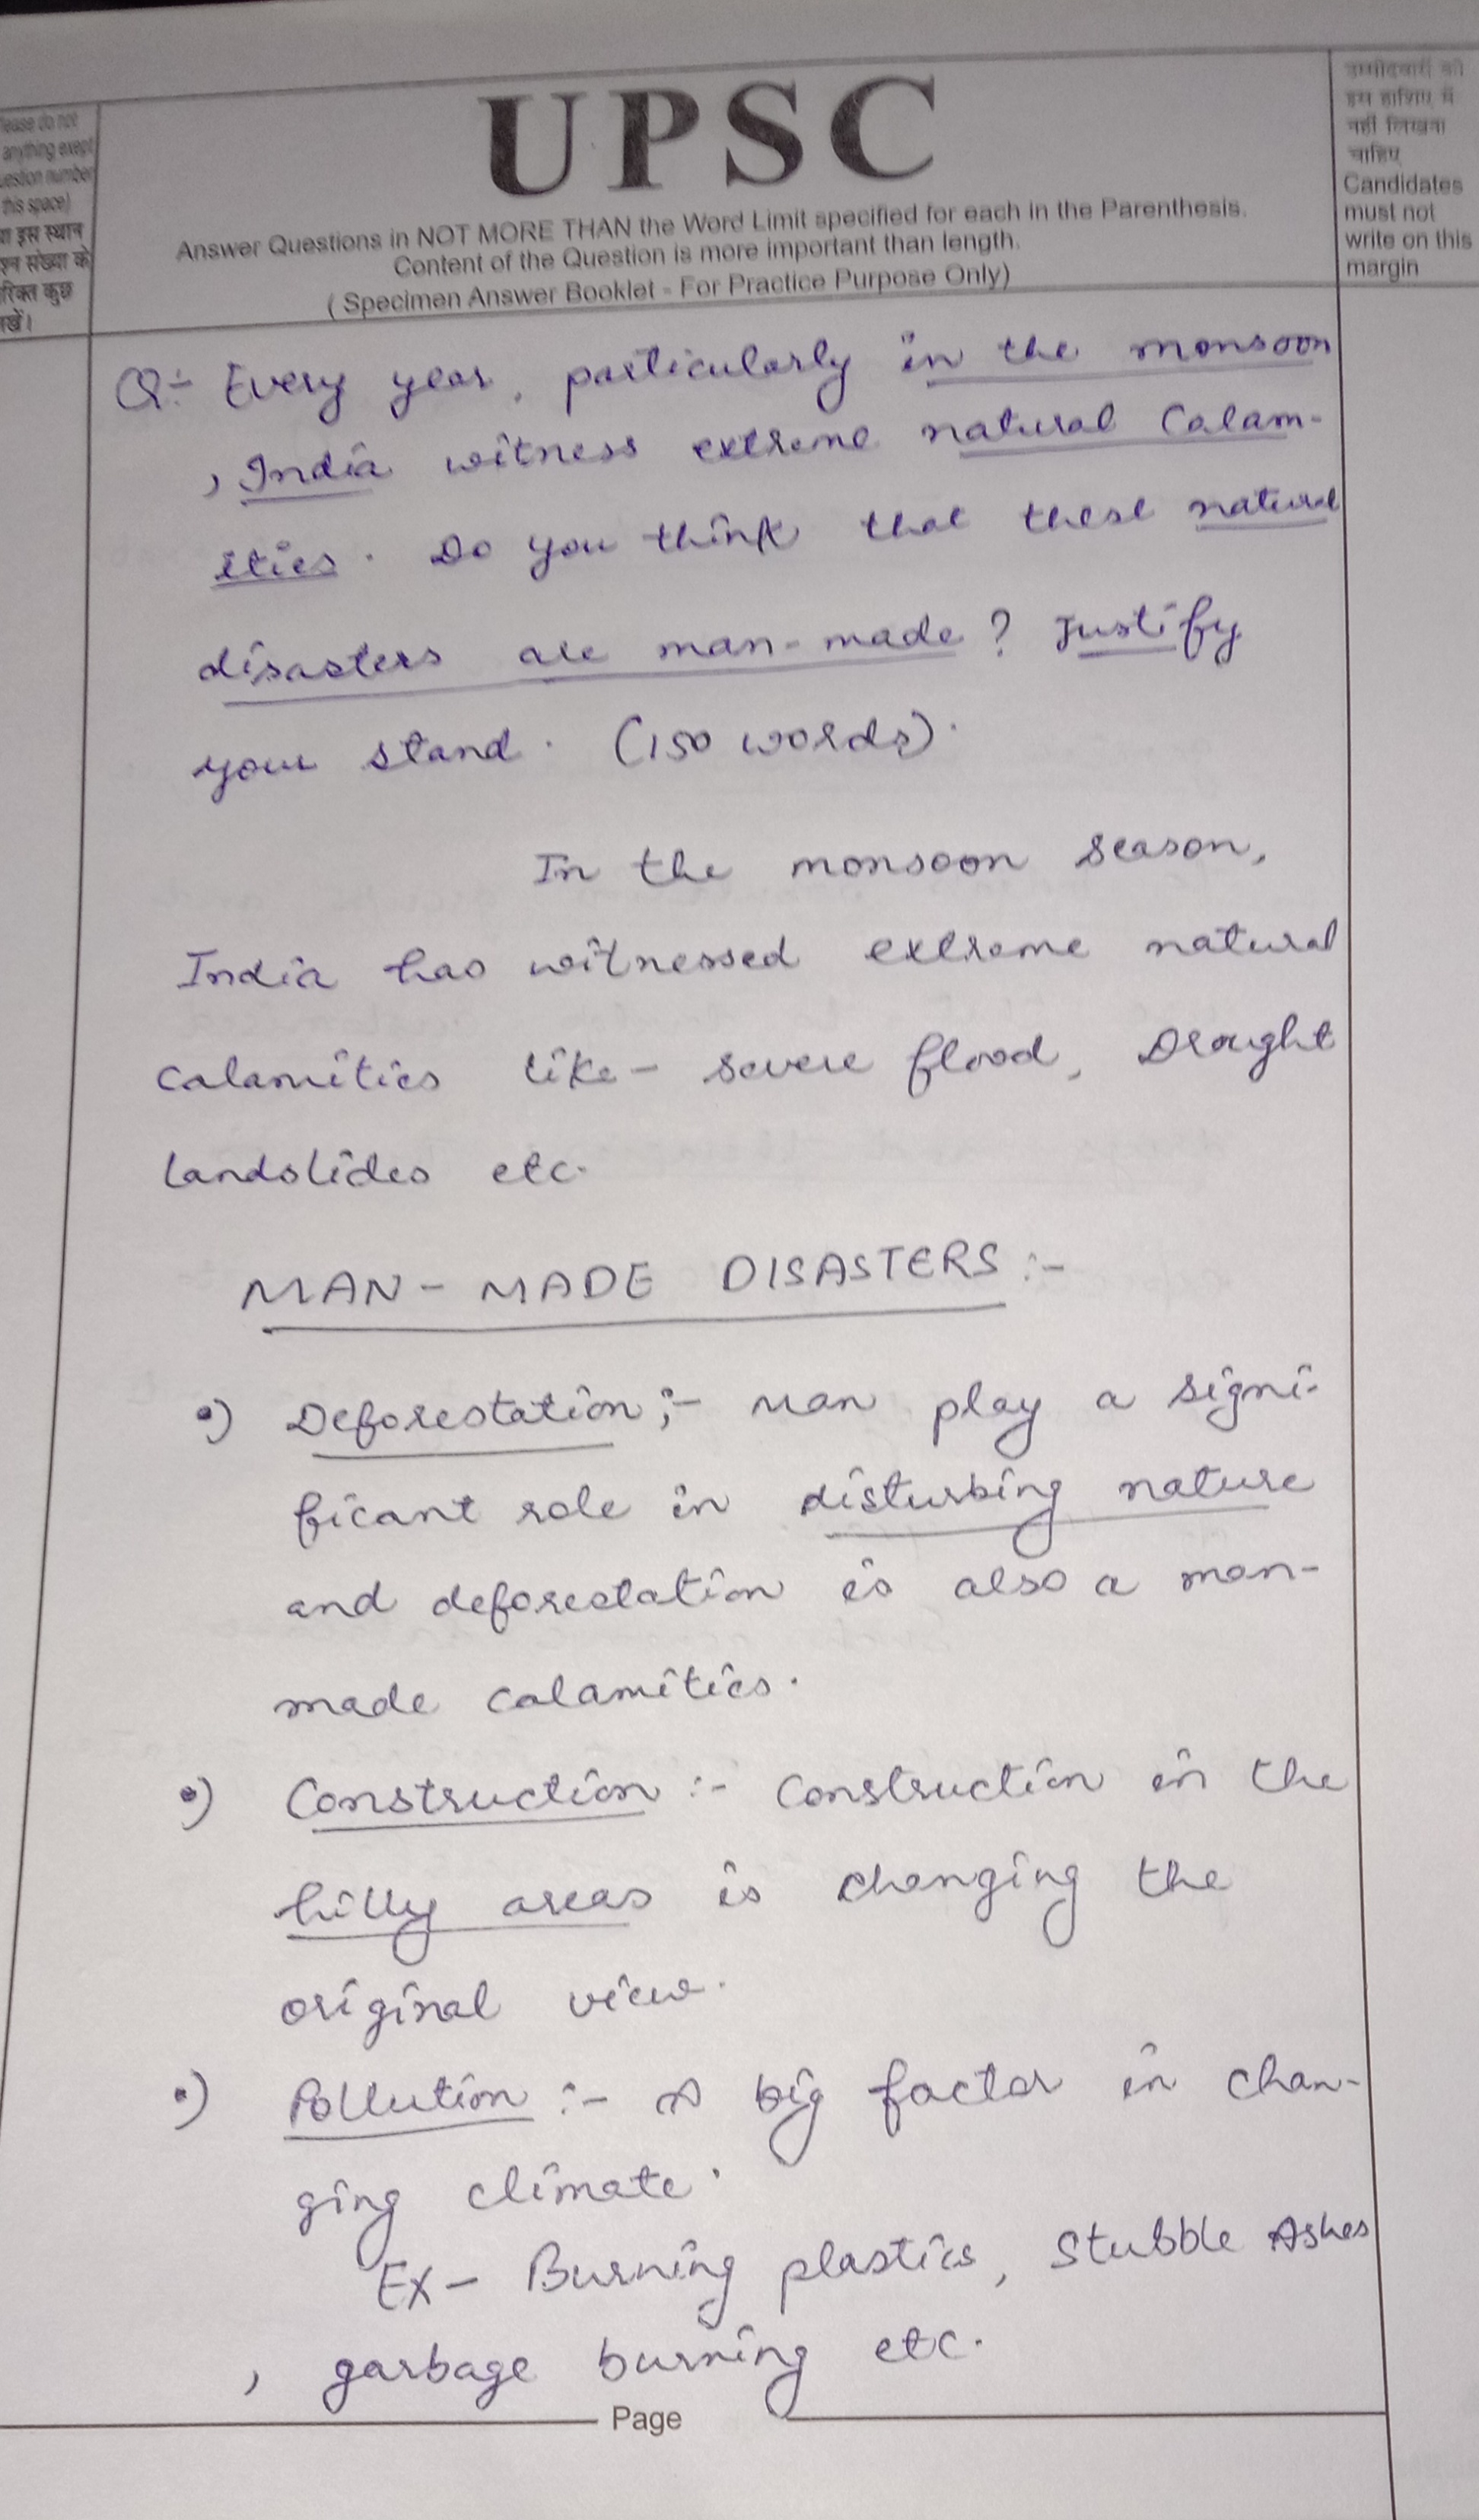 UPSC
Answer Questions in NOT MORE THAN the Word Limit specified for each in the Parenthesis.
Content of the Question is more important than length.
( Specimen Answer Booklet - For Practice Purpose Only)
lease do not
anything exept
uestion number
this space)
या इस स्थान
श्न संख्या के
रिक्त कुछ
खें।
उम्मीदवारों को
इस हाशिए में
नहीं लिखना
चाहिए
Candidates
must not
write on this
margin
Q:- Every year, particularly in the monsoon
, India witness extreme natural Calam-
ities. Do you think that these natural
disasters are man-made? Justify
your stand. (150 words).
In the monsoon season,
India has witnessed extreme natural
calamities like- severe flood, Drought
landslides etc.
MAN-MADE DISASTERS:-
•) Deforestation;- Man play a signi-
ficant role in disturbing nature
and deforestation is also a man-
made calamities.
•) Construction:- Construction in the
hilly areas is changing the
original view.
•) Pollution:- A big factor in chan-
ging climate.
Ex- Burning plastics, Stubble Ashes
, garbage burning etc.
Page